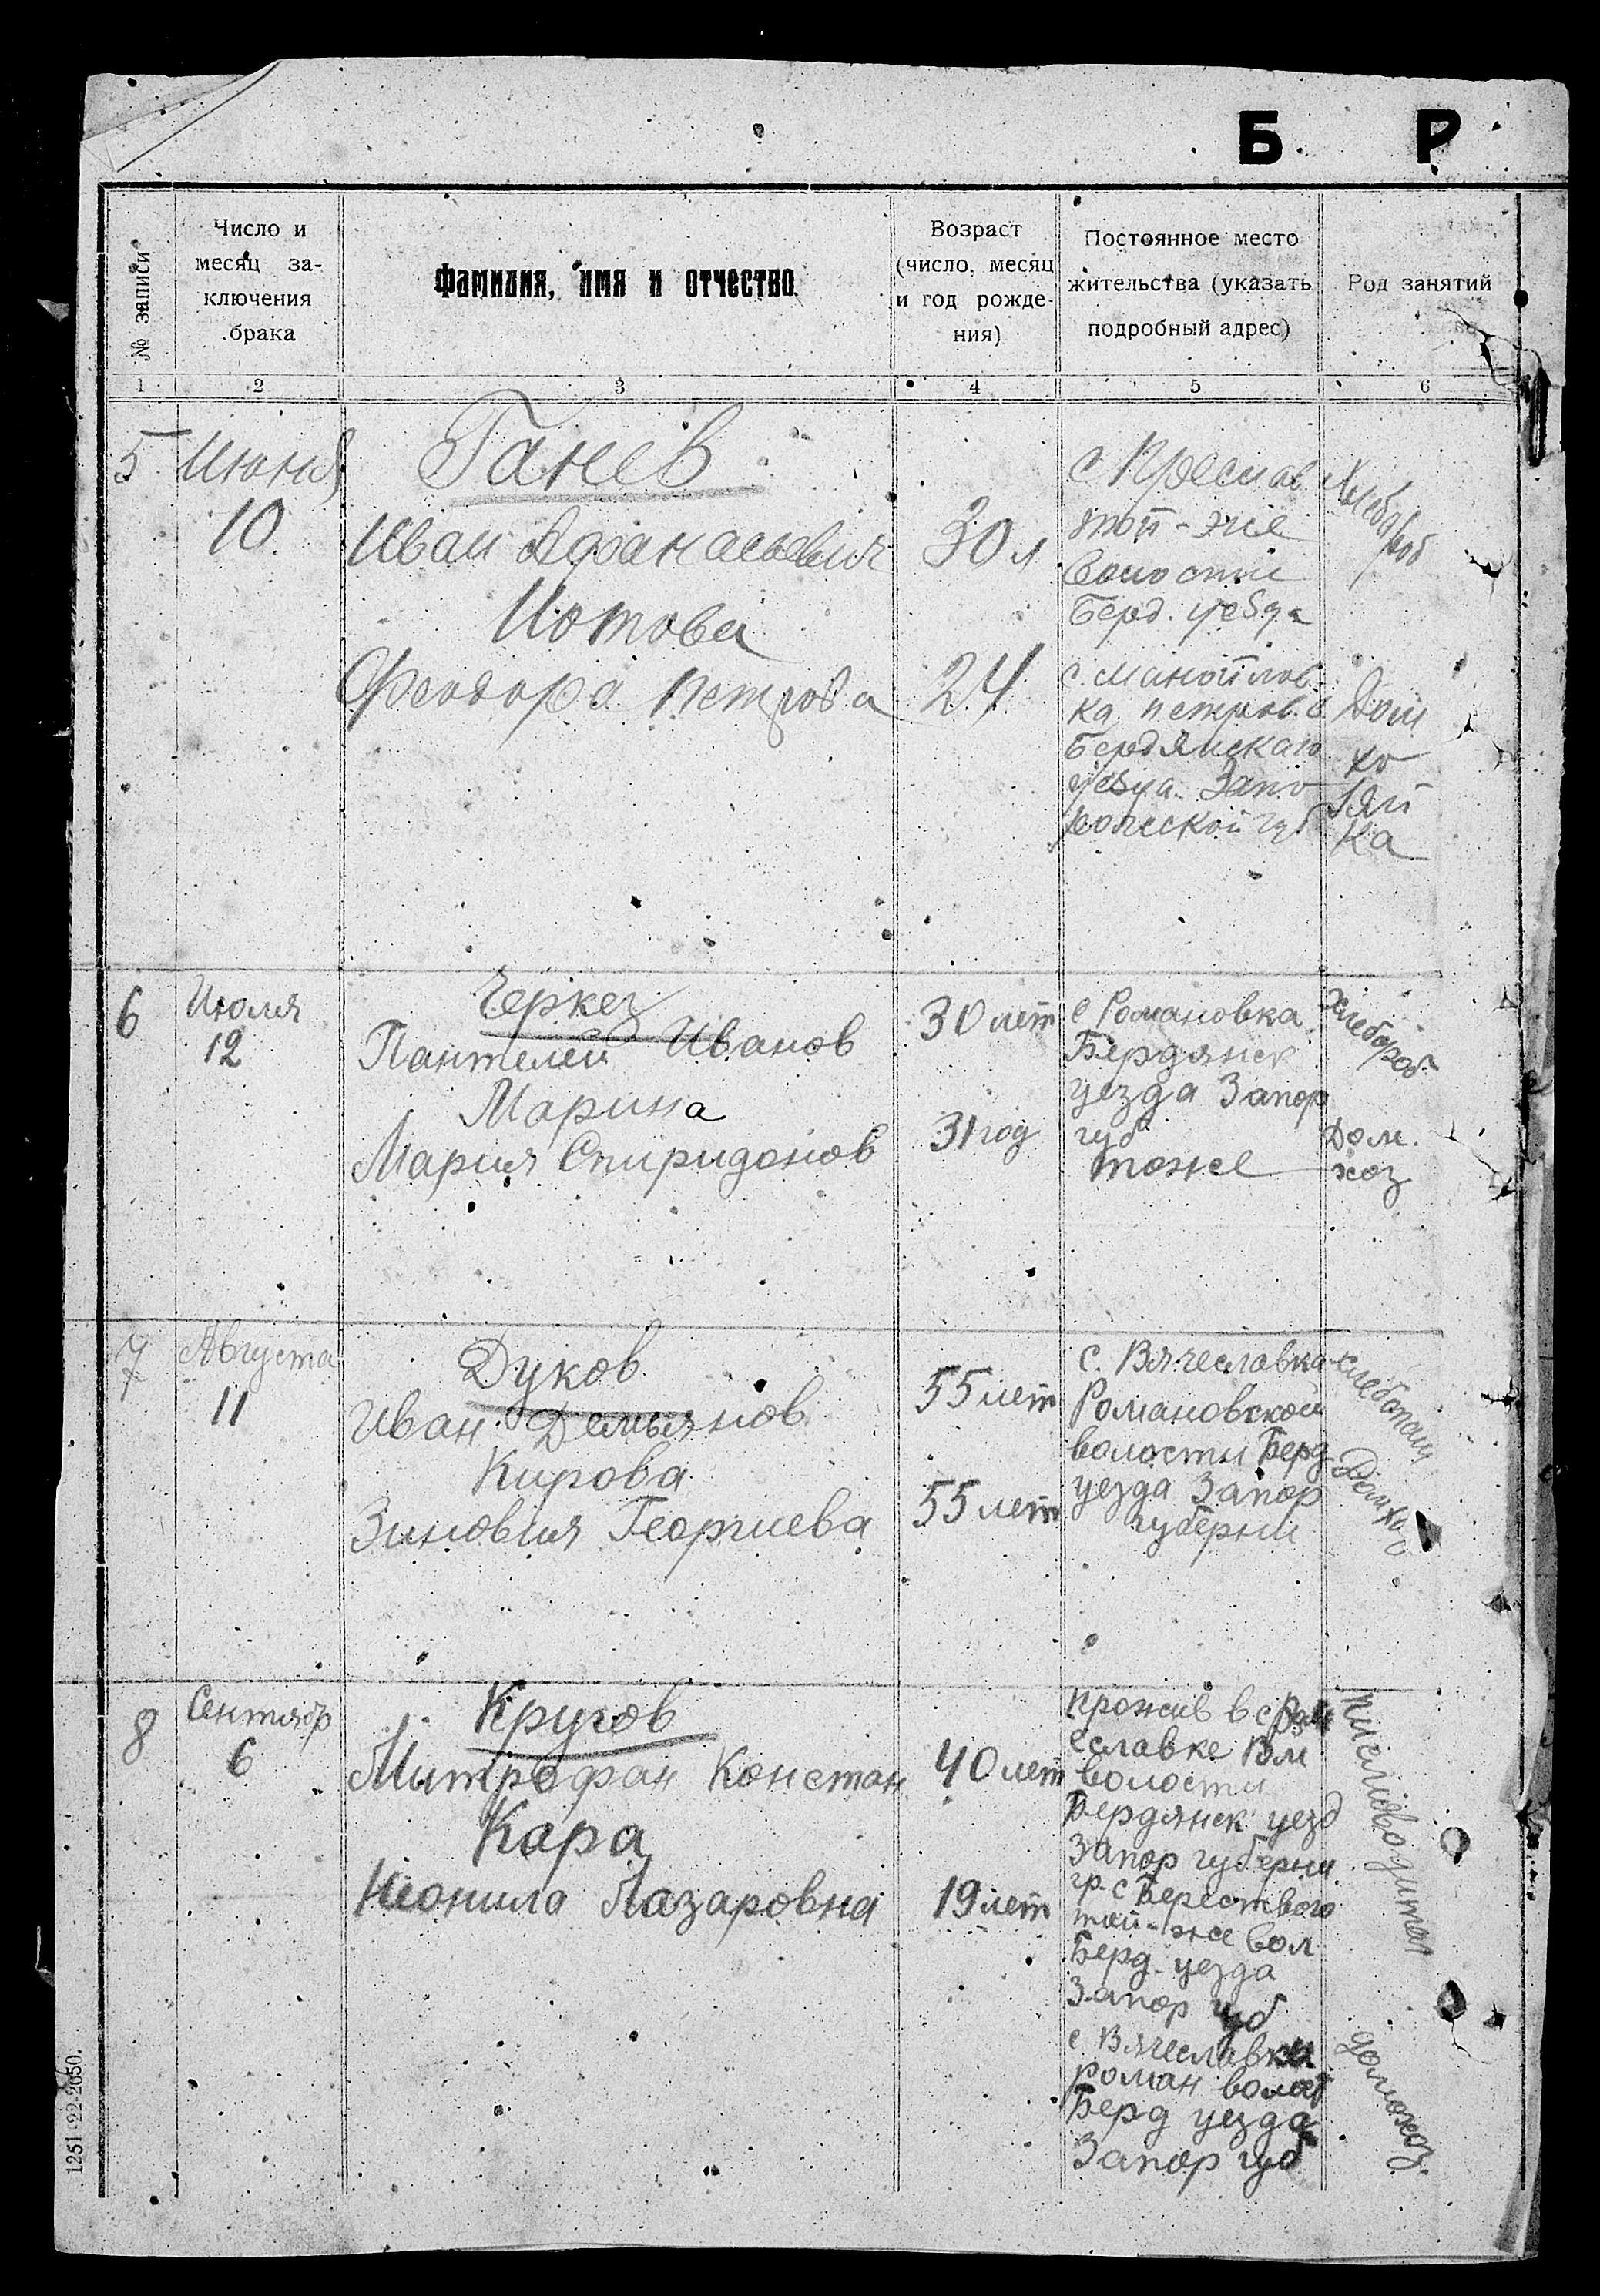 Б Р
№ записи
Число и
месяц за-
ключения
брака
Фамилия, имя и отчество
Возраст
(число, месяц
и год рожде-
ния)
Постоянное место
жительства (указать
подробный адрес)
Род занятий
1 2 3 4 5 6
5 Июня
10
Ганев
Иван Афанасьевич
Иотова
Феодора Петрова
30 л
24
той-же
Волости
Берд. уезда
с. Манойлов-
ка петров. в
Бердянскаго
уезда Запо
рожской губ
Хлебороб
Дом
хо
зяй
ка
6 Июля
12
Черкез
Пантелей Иванов
Марина
Мария Спиридонов
30 лет
31 год
с Романовка
Бердянск
уезда Запор
губ
тоже
Хлебороб
Дом.
хоз
7 Августа
11
Дуков
Иван Демьянов
Кирова
Зиновия Георгиева
55 лет
55 лет
с. Вячеславка
Романовской
волости Берд
уезда Запор
губерни
8 Сентябр
6
Кругов
Митрофан Констан
Кара
Неонила Лазаровна
40 лет
19 лет
прожив в с
еславке
волости
Бердянск уезд
Запор губерни
гр. с Берествого
той-же вол
Берд. уезда
Запор губ
с Вячеславка
роман волост
Берд уезда
Запор губ
домохоз.
1251-22-2650.